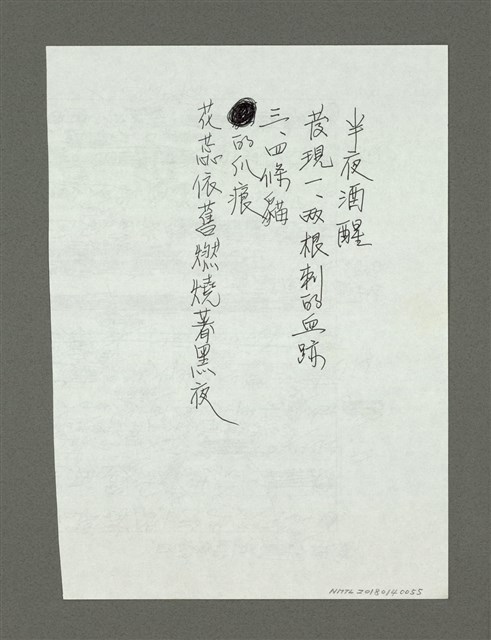 半夜酒醒
發現一、兩根刺的血跡
三、四條貓
的爪痕
花蕊依舊燃燒著黑夜
NMTL20180140055